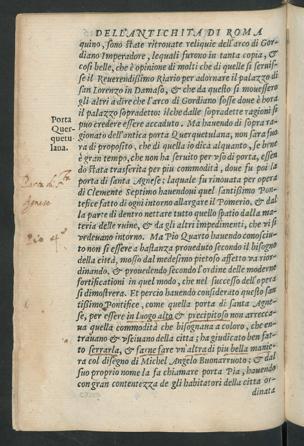 DELL'ANTICHITA DI ROMA
quino, sono state ritrouate reliquie dell'arco di Gor-
diano Imperadore, lequali furono in tanta copia, &
cosi belle, che è opinione di molti che di quelle si seruis-
se il Reuerendissimo Riario per adornare il palazzo di
san Lorenzo in Damaso, & che da quello si mouessero
gli altri à dire che l'arco di Gordiano fosse doue è hora
il palazzo sopradetto: ilche dalle sopradette ragioni si
puo credere essere accaduto. Ma hauendo di sopra ra-
gionato dell'antica porta Querquetulana, non sara fuo
ra di proposito, che di quella io dica alquanto, se bene
è gran tempo, che non ha seruito per vso di porta, essen
do stata trasferita per piu commodità, doue fu poi la
porta di santa Agnese: laquale fu rinouata per opera
di Clemente Settimo hauendoui quel santissimo Pon-
tefice fatto di ogni intorno allargare il Pomerio, & dal
la parte di dentro nettare tutto quello spatio dalla ma-
teria delle ruine, & da gli altri impedimenti, che vi si
vedeuano intorno. Ma Pio Quarto hauendo conosciu-
to non si essere a bastanza proueduto secondo il bisogno
della città, mosso dal medesimo pietoso affetto va rior-
dinando, & prouedendo secondo l'ordine delle moderne
fortificationi in quel modo, che nel successo dell'opera
si dimostrera. Et percio hauendo considerato questo san
tissimo Pontefice, come quella porta di santa Agne-
se, per essere in luogo alto & precipitoso non arrecca-
ua quella commodità che bisognaua a coloro, che en-
trauano & vsciuano della citta; ha giudicato ben fat-
to serrarla, & farne fare vn'altra di piu bella manie-
ra col disegno di Michel Angelo Buonarruoto; & dal
suo proprio nome la fa chiamare porta Pia, hauendo
con gran contentezza de gli habitatori della citta or-
dinata
Porta
Quer-
quetu
lana.
Porta di S.
Agnese
Pio 4°